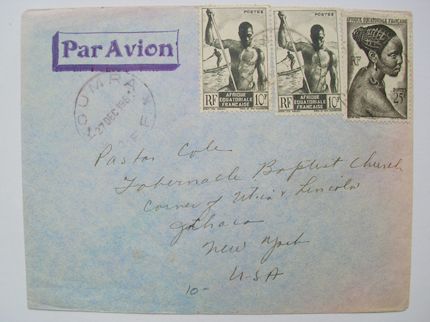 Par Avion
KOUMRA
27 DEC
A E F
POSTES
RF AFRIQUE ÉQUATORIALE FRANÇAISE 10F
POSTES
RF AFRIQUE ÉQUATORIALE FRANÇAISE 10F
AFRIQUE ÉQUATORIALE FRANÇAISE
RF
POSTES
25F
Pastor Cole
Tabernacle Baptist Church
Corner of Utica & Lincoln
Ithaca
New York
USA
10-